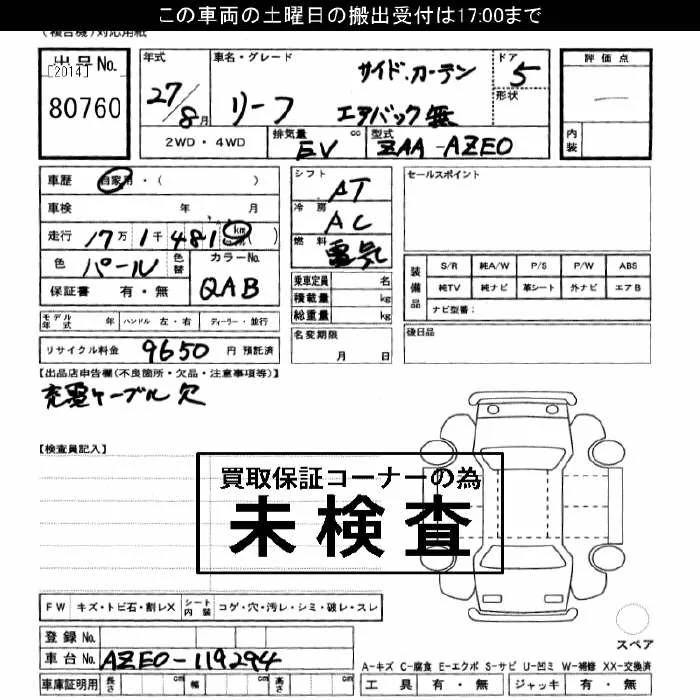 この車両の土曜日の搬出受付は17:00まで
(複合機)対応用紙
出品No.
[2014]
80760
年式
27/8月
車名・グレード
リーフ
サイド.カーテン
エアバック無
ドア
5
形状
評価点
内装
2WD・4WD
排気量
cc
EV
型式
ZAA-AZE0
車歴 自家用・( )
車検 年 月
走行 17万1千481km( )
色 パール 色替
カラーNo.
QAB
保証書 有・無
シフト
AT
冷房
AC
燃料
電気
セールスポイント
装備品
S/R 純A/W P/S P/W ABS
純TV 純ナビ 革シート 外ナビ エアB
ナビ型番:
乗車定員 名
積載量 kg
総重量 kg
モデル年式 年 ハンドル 左・右 ディーラー・並行
名変期限
月 日
後日品
リサイクル料金 9650 円 預託済
【出品店申告欄(不良箇所・欠品・注意事項等)】
充電ケーブル欠
【検査員記入】
買取保証コーナーの為
未検査
FW キズ・トビ石・割レX シート内装 コゲ・穴・汚レ・シミ・破レ・スレ
登録No.
車台No. AZE0-119294
スペア
A-キズ C-腐食 E-エクボ S-サビ U-凹ミ W-補修 XX-交換済
車庫証明用 長さ cm 幅 cm 高さ cm
工具 有・無 ジャッキ 有・無